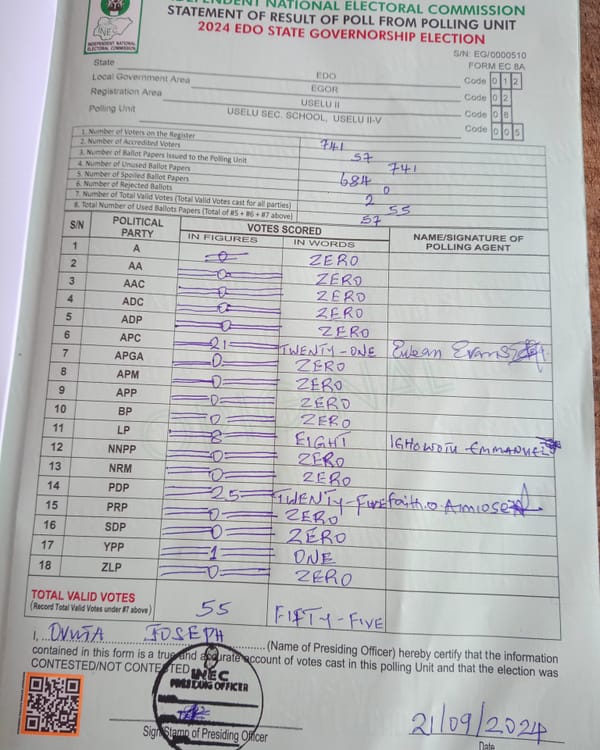 INDEPENDENT NATIONAL ELECTORAL COMMISSION
STATEMENT OF RESULT OF POLL FROM POLLING UNIT
2024 EDO STATE GOVERNORSHIP ELECTION
INEC
INDEPENDENT NATIONAL
ELECTORAL COMMISSION
S/N: EG/0000510
FORM EC 8A
State EDO Code 0 1 2
Local Government Area EGOR Code 0 2
Registration Area USELU II Code 0 8
Polling Unit USELU SEC. SCHOOL, USELU II-V Code 0 0 5
1. Number of Voters on the Register 741
2. Number of Accredited Voters 57
3. Number of Ballot Papers Issued to the Polling Unit 741
4. Number of Unused Ballot Papers 684
5. Number of Spoiled Ballot Papers 0
6. Number of Rejected Ballots 2
7. Number of Total Valid Votes (Total Valid Votes cast for all parties) 55
8. Total Number of Used Ballots Papers (Total of #5 + #6 + #7 above) 57
S/N POLITICAL PARTY VOTES SCORED NAME/SIGNATURE OF POLLING AGENT
IN FIGURES IN WORDS
1 A 0 ZERO
2 AA 0 ZERO
3 AAC 0 ZERO
4 ADC 0 ZERO
5 ADP 0 ZERO
6 APC 21 TWENTY-ONE Evans
7 APGA 0 ZERO
8 APM 0 ZERO
9 APP 0 ZERO
10 BP 0 ZERO
11 LP 8 EIGHT EMMANUEL
12 NNPP 0 ZERO
13 NRM 0 ZERO
14 PDP 25 TWENTY-FIVE faith.o
15 PRP 0 ZERO
16 SDP 0 ZERO
17 YPP 1 ONE
18 ZLP 0 ZERO
TOTAL VALID VOTES 55 FIFTY-FIVE
(Record Total Valid Votes under #7 above)
I, JOSEPH (Name of Presiding Officer) hereby certify that the information
contained in this form is a true and accurate account of votes cast in this polling Unit and that the election was
CONTESTED/NOT CONTESTED
INEC
PRESIDING OFFICER
Sign/Stamp of Presiding Officer
21/09/2024
Date